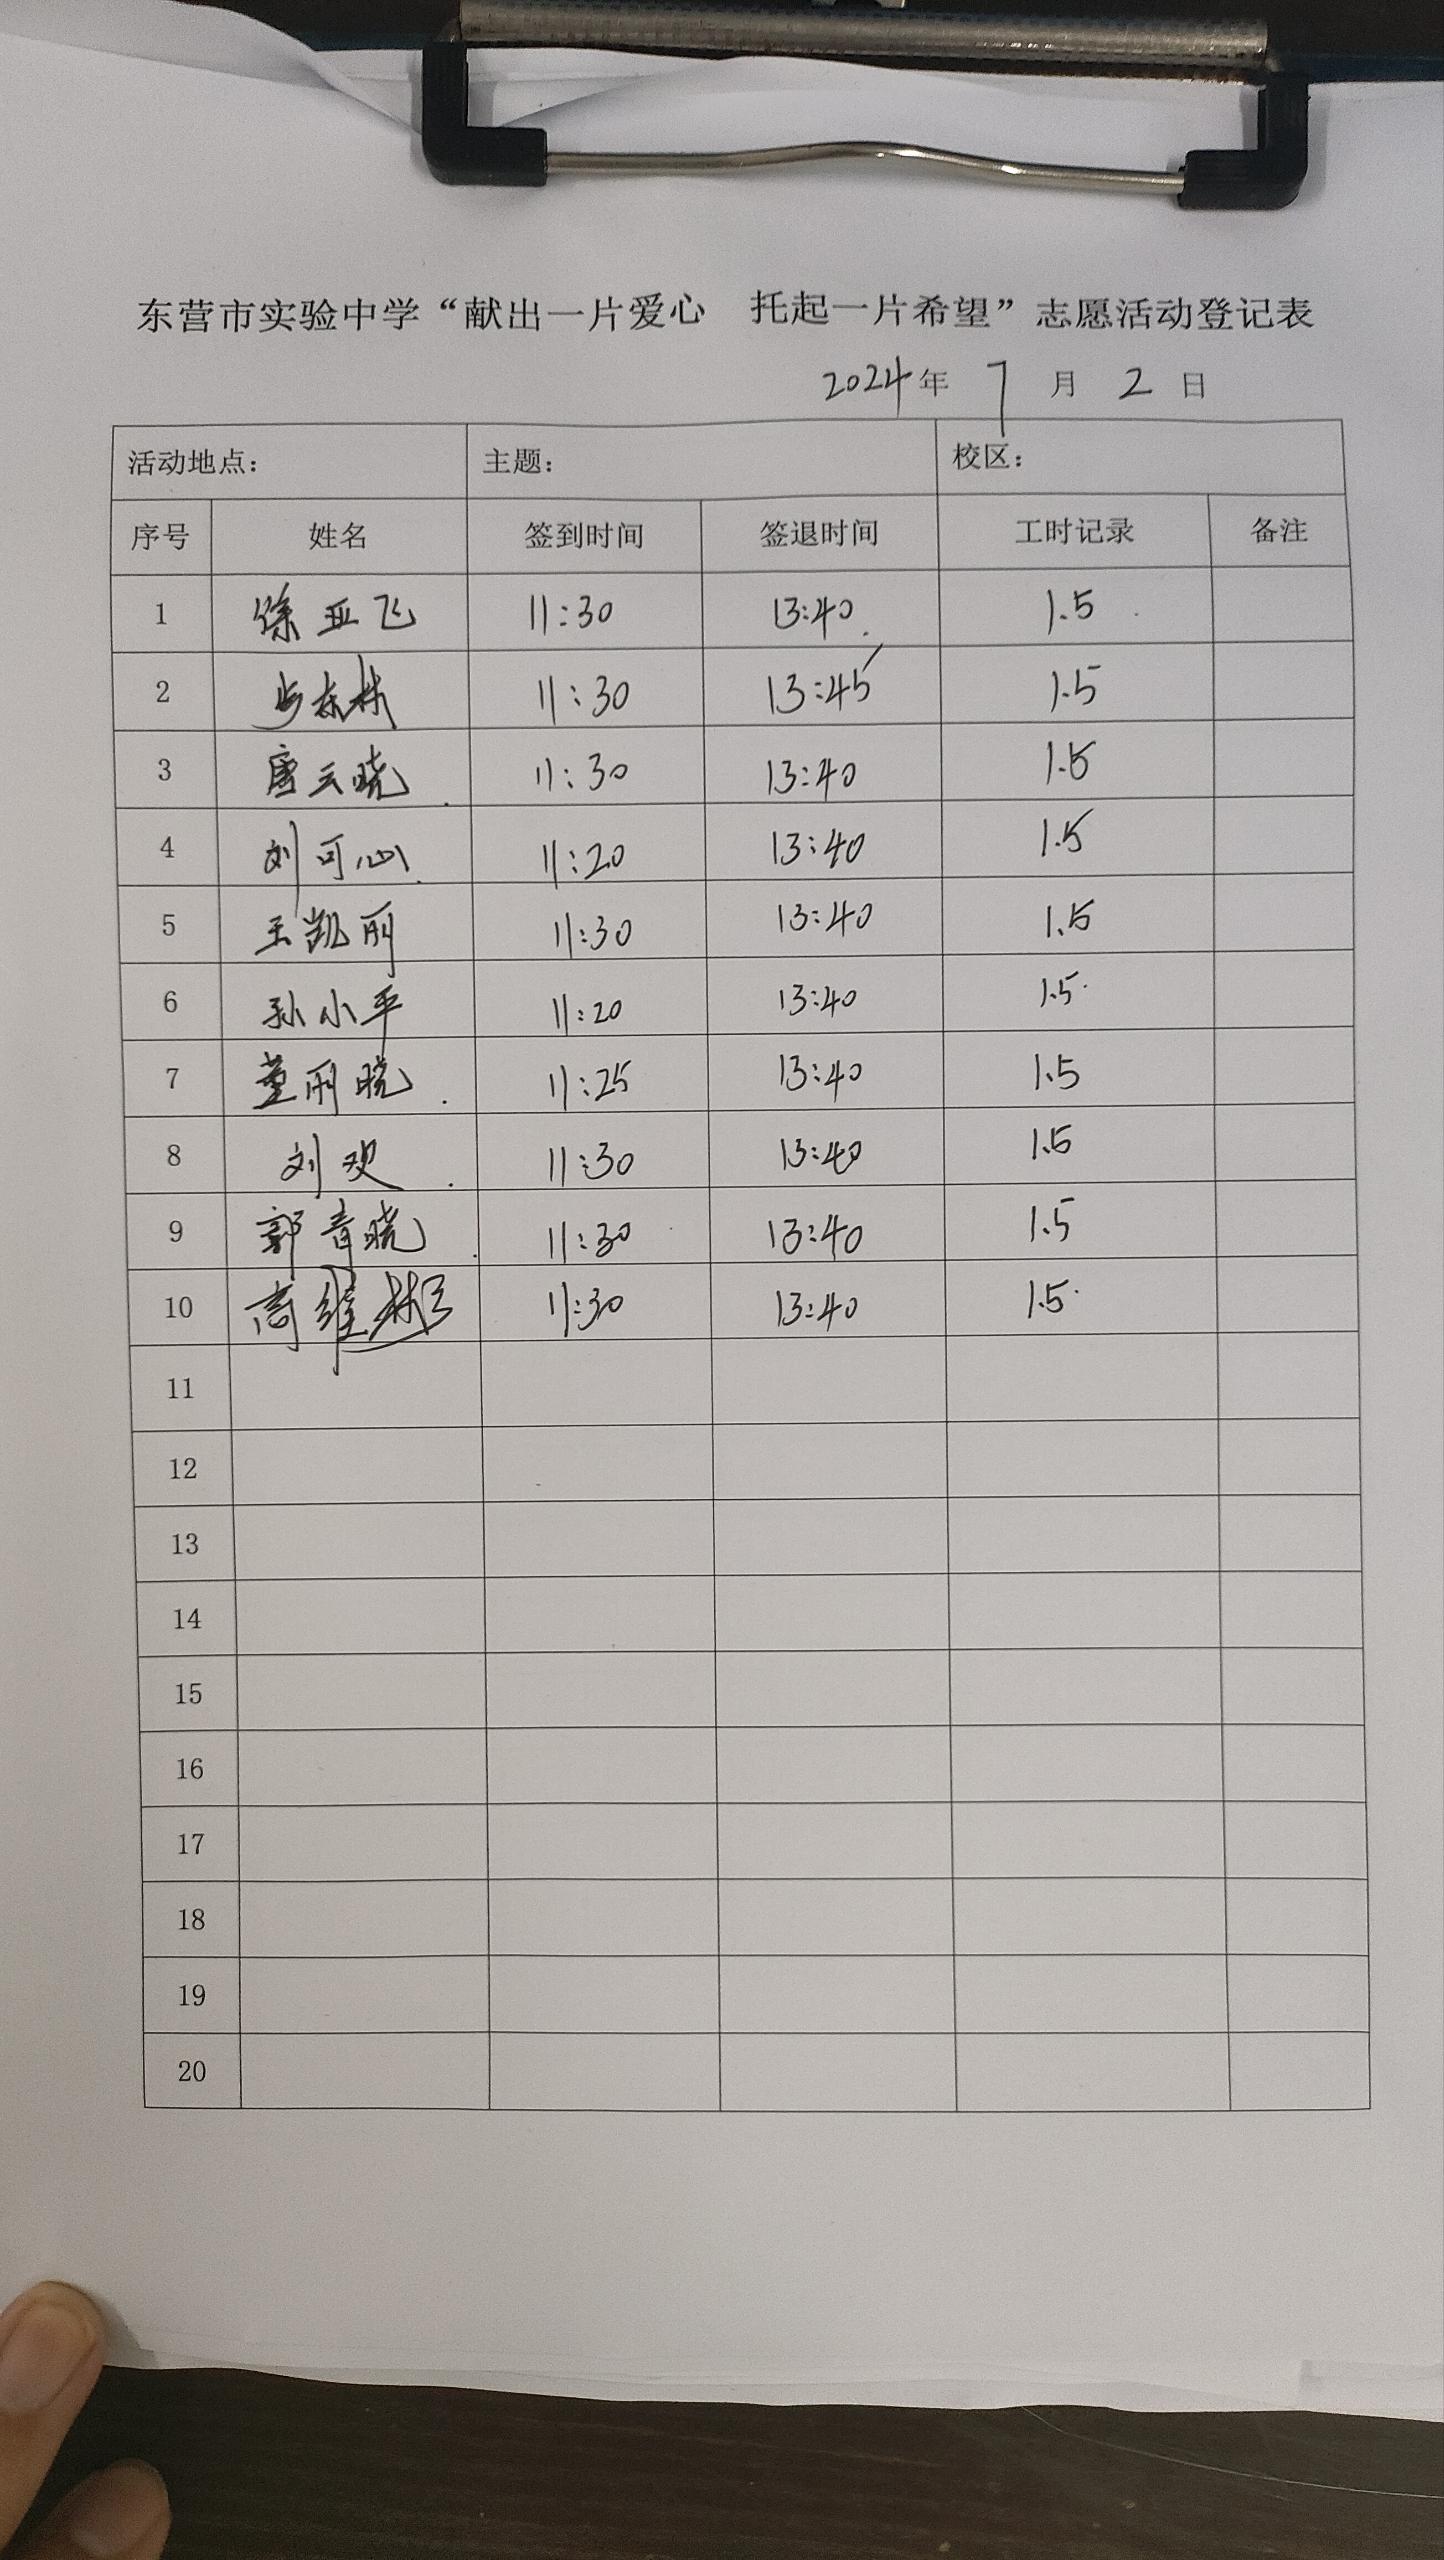 东营市实验中学“献出一片爱心 托起一片希望”志愿活动登记表
2024年 7 月 2 日
活动地点： 主题： 校区：
序号 姓名 签到时间 签退时间 工时记录 备注
1 徐亚飞 11:30 13:40. 1.5
2 步东林 11:30 13:45 1.5
3 唐云晓 11:30 13:40 1.5
4 刘可心 11:20 13:40 1.5
5 王凯丽 11:30 13:40 1.5
6 孙小平 11:20 13:40 1.5
7 董丽晓 11:25 13:40 1.5
8 刘欢 11:30 13:40 1.5
9 郭青晓 11:30 13:40 1.5
10 高维彬 11:30 13:40 1.5
11
12
13
14
15
16
17
18
19
20